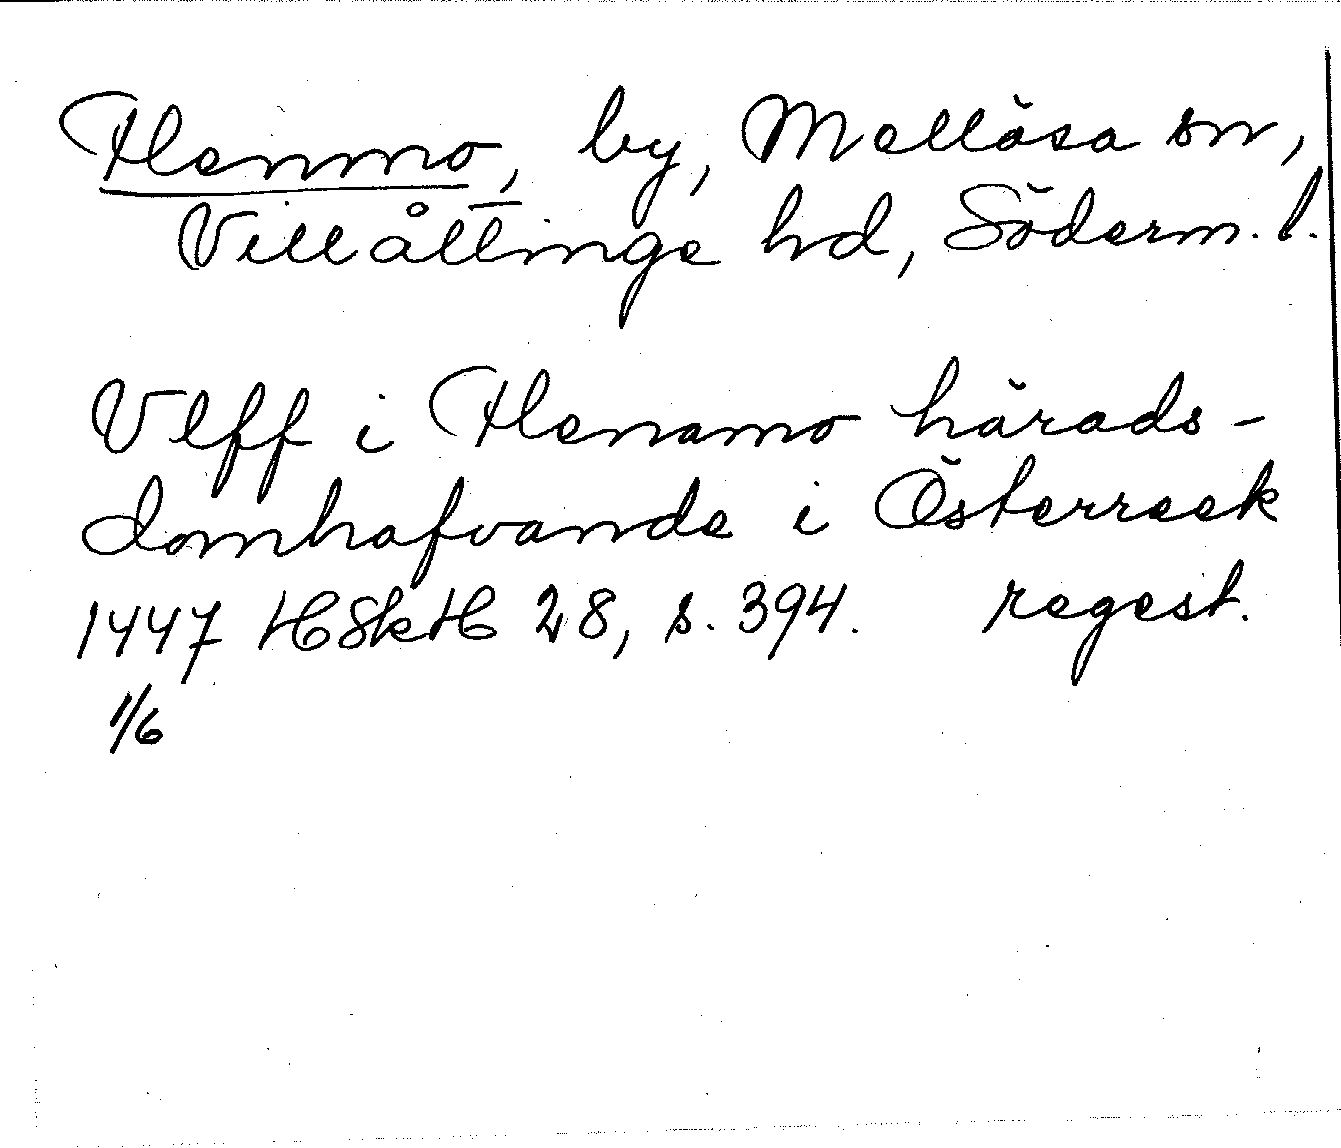 Henmo, by, Mellösa sn,
Villåttinge hd, Söderm. l.
Ulff i Henamo härads-
domhafvande i Österreek
1447 HSkH 28, s. 394. regest.
1/6